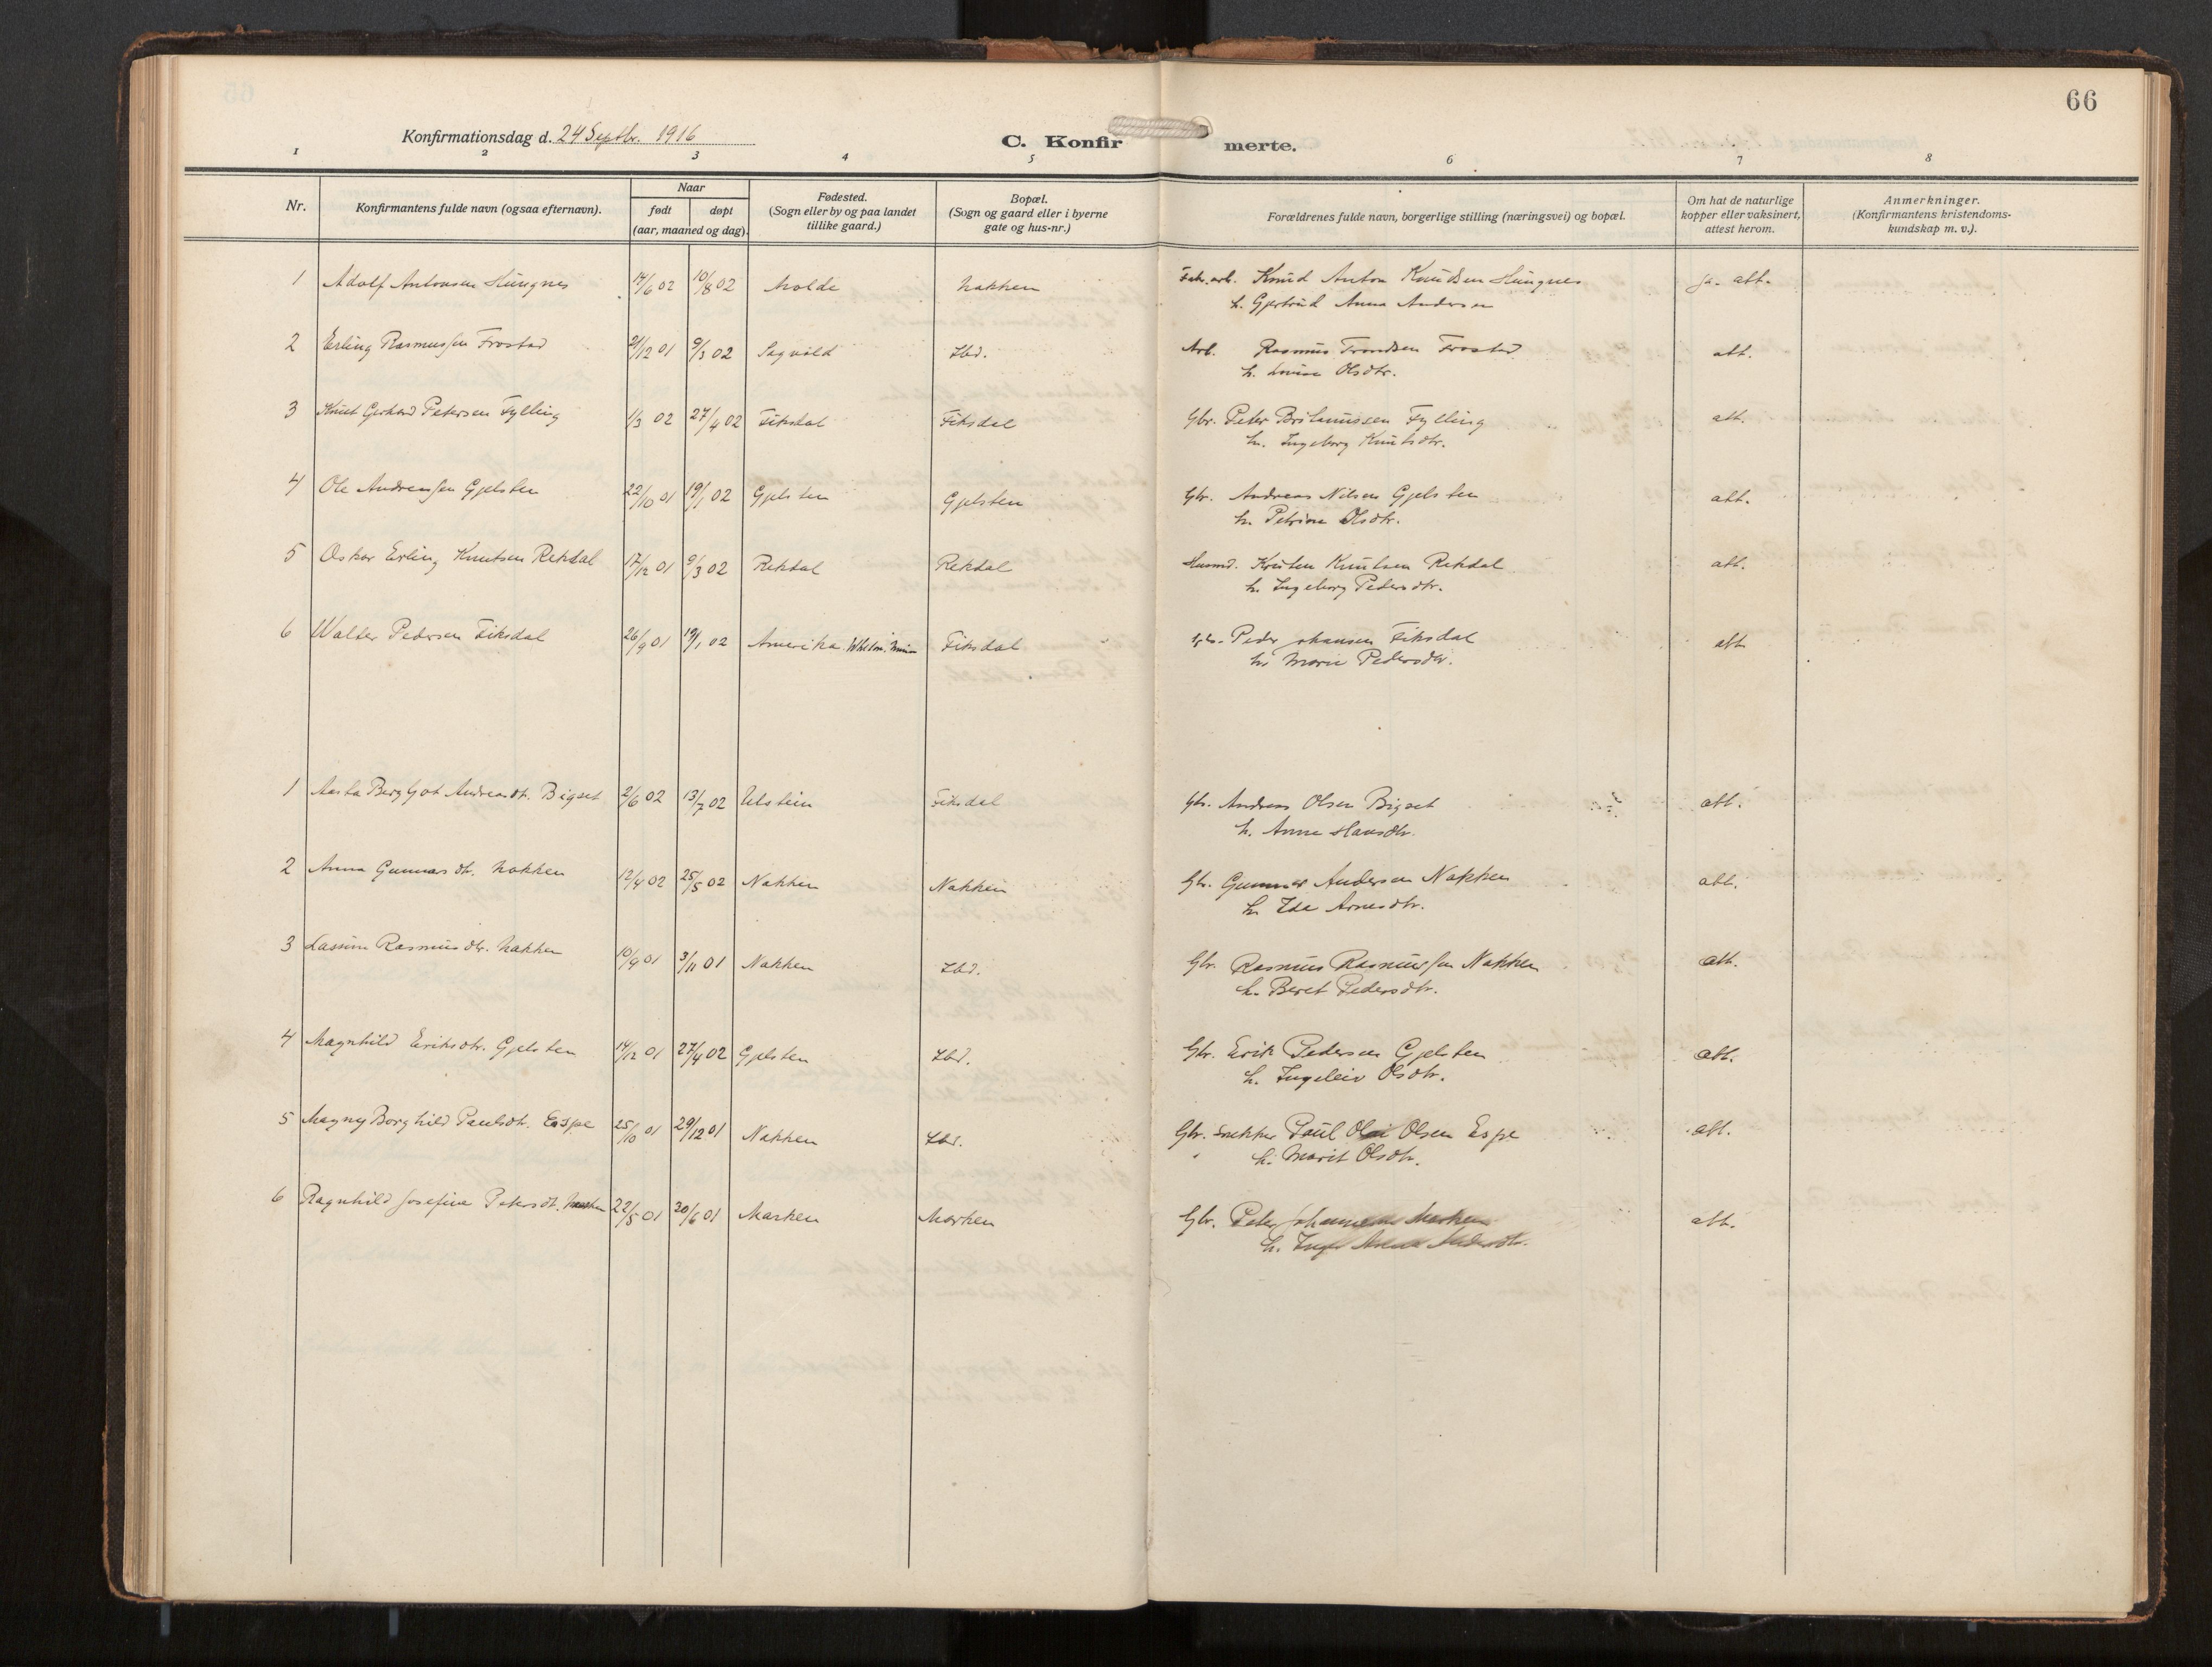 66
Konfirmationsdag d. 24 Septbr. 1916
C. Konfirmerte.
1 2 3 4 5 6 7 8
Nr.
Konfirmantens fulde navn (ogsaa efternavn).
Naar
født døpt
(aar, maaned og dag).
Fødested.
(Sogn eller by og paa landet
tillike gaard.)
Bopæl.
(Sogn og gaard eller i byerne
gate og hus-nr.)
Forældrenes fulde navn, borgerlige stilling (næringsvei) og bopæl.
Om hat de naturlige
kopper eller vaksinert,
attest herom.
Anmerkninger.
(Konfirmantens kristendoms-
kundskap m. v.).
1 Adolf Antonsen Hungnes 14/6 02 10/8 02 Molde Nakken Fabr. arb. Knud Anton Knudsen Hungnes ja. att.
h. Gjertrud Anna Andersen
2 Erling Rasmussen Frostad 21/12 01 9/3 02 Ibd. Arb. Rasmus Trondsen Frostad att.
h. Lovise Olsdtr.
3 Knut Gerhard Petersen Fylling 1/3 02 27/4 02 Fiksdal Fiksdal Gbr. Peter Fylling att.
h. Ingeborg Knutsdtr.
4 Ole Andreassen Gjelsten 22/10 01 19/1 02 Gjelsten Gjelsten Gbr. Andreas Nilsen Gjelsten att.
h. Petrine Olsdtr.
5 Oskar Erling Knutsen Rekdal 17/12 01 9/3 02 Rekdal Rekdal Husmd. Knutsen Rekdal att.
h. Ingeborg Pedersdtr.
6 Walter Pedersen Fiksdal 26/9 01 19/1 02 Amerika. Fiksdal Gbr. Peder Johansen Fiksdal att.
h. Marie Pedersdtr.
1 Aasta Bergljot Andreasdtr. Bigset 2/6 02 13/7 02 Ulstein Fiksdal Gbr. Andreas Olsen Bigset att.
h. Anne Hansdtr.
2 Anna Gunnarsdtr. Nakken 12/4 02 25/5 02 Nakken Nakken Gbr. Gunnar Andersen Nakken att.
h. Ida Arnesdtr.
3 Lassine Rasmusdtr. Nakken 10/9 01 3/11 01 Nakken Ibd. Gbr. Rasmus Rasmussen Nakken att.
h. Beret Pedersdtr.
4 Magnhild Eriksdtr. Gjelsten 14/12 01 27/4 02 Gjelsten Ibd. Gbr. Erik Pedersen Gjelsten att.
h. Ingeleiv Olsdtr.
5 Magny Borghild Paulsdtr. Espe 25/10 01 29/12 01 Nakken Ibd. Gbr. Snekker Paul Olai Olsen Espe att.
h. Marit Olsdtr.
6 Ragnhild Josefine Petersdtr. 22/5 01 20/6 01 Marken Marken Gbr. Peter Johannesen Marken att.
h. Inger